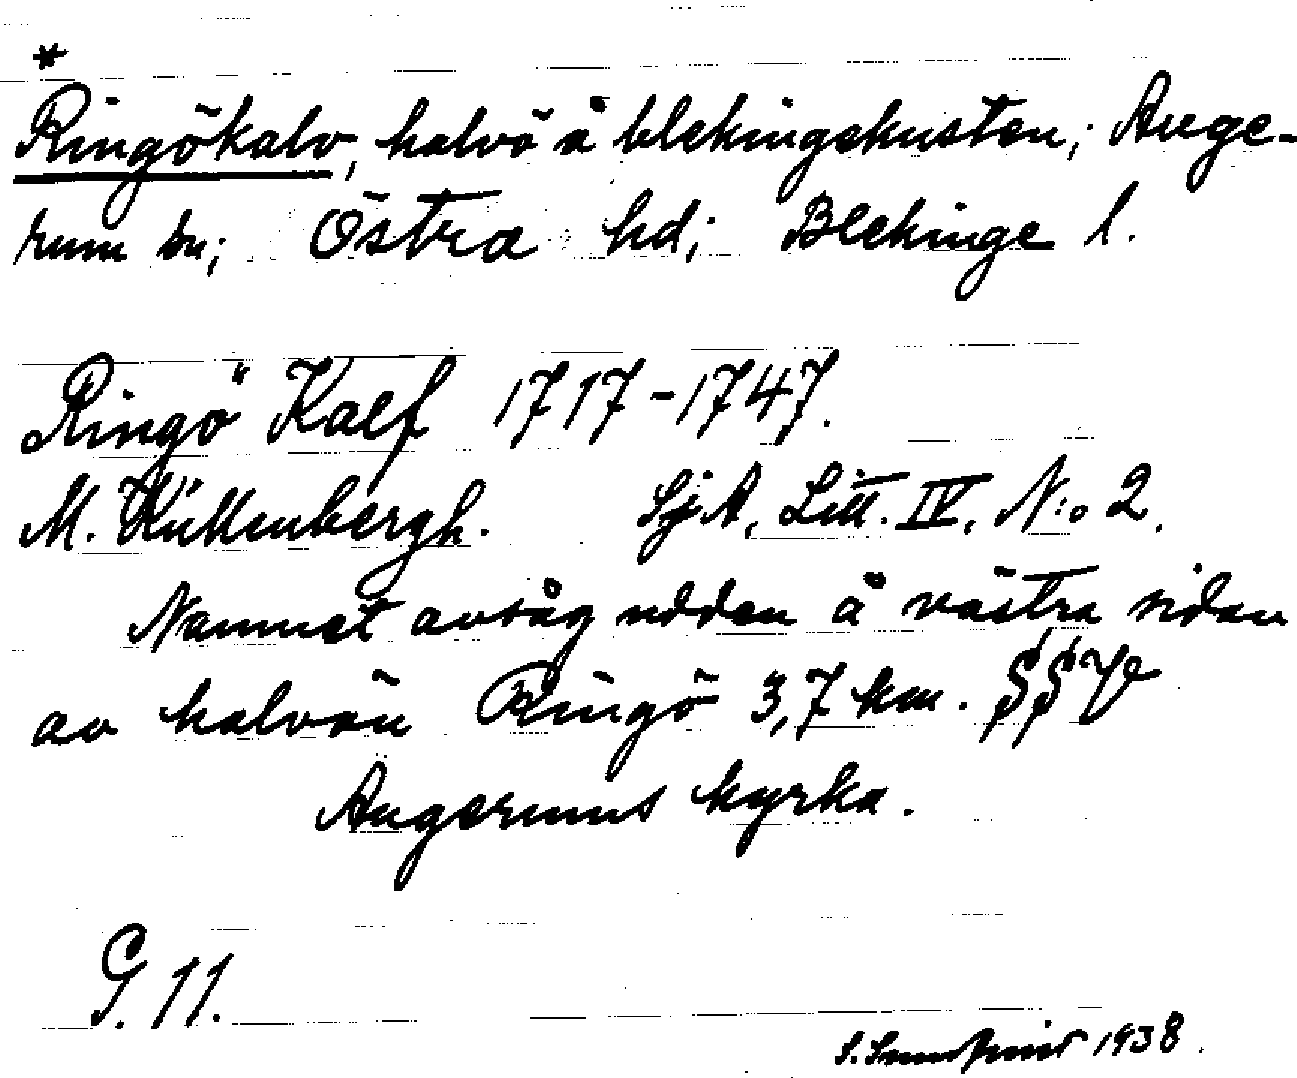 *
Ringökalv, halvö å blekingekusten; Auge-
rum sn; Östra hd; Blekinge l.
Ringö Kalf 1717-1747.
M. Küllenbergh. SjA, Litt. IV, N:o 2.
Namnet avsåg udden å västra sidan
av halvön Ringö 3,7 km. SSV
Augerums kyrka.
G. 11.
1938.